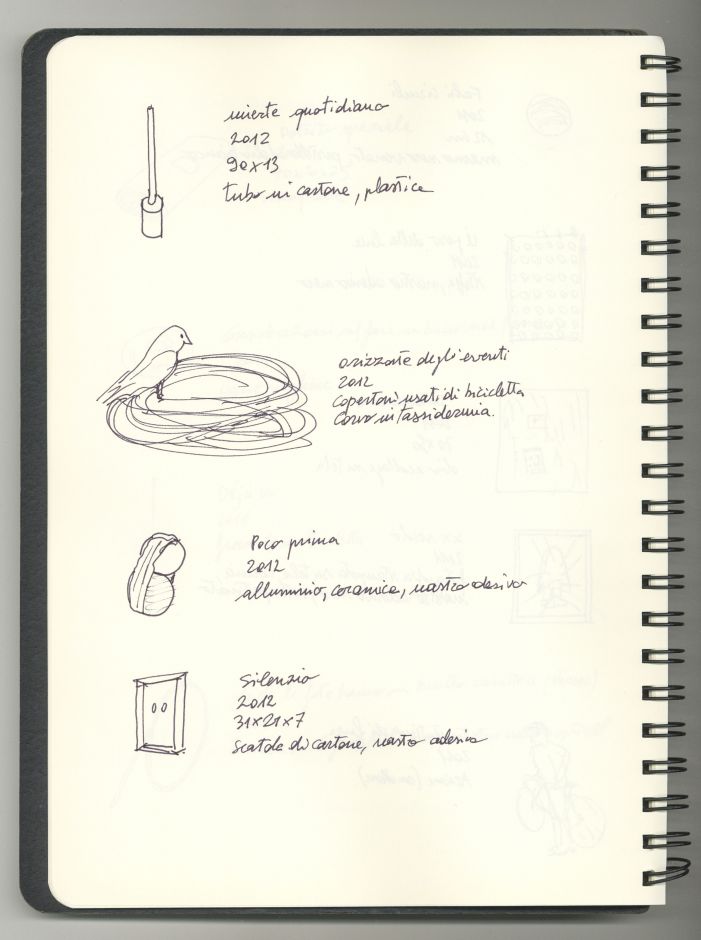 niente quotidiano
2012
90x13
tubo in cartone, plastica
orizzonte degli eventi
2012
copertoni usati di bicicletta
corvo in tassidermia.
Poco prima
2012
alluminio, ceramica, nastro adesivo
silenzio
2012
31x21x7
scatole di cartone, nastro adesivo